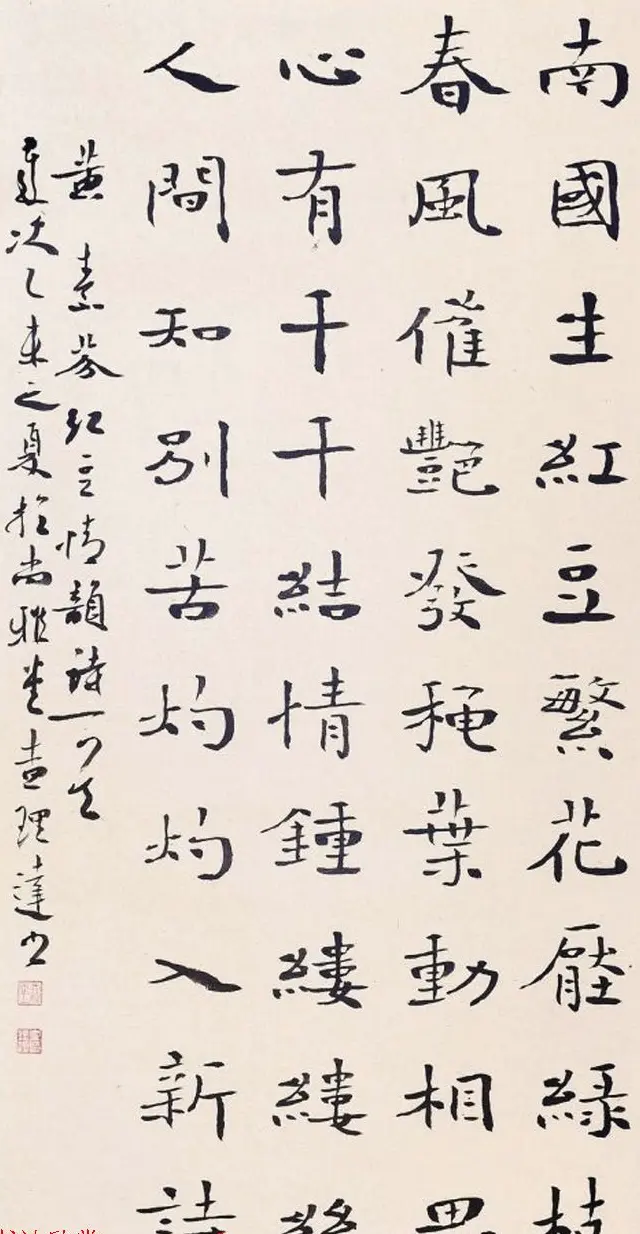 南國生紅豆繁花壓綠枝
春風催艷發穐葉動相思
心有千千結情鍾縷縷絲
人間知別苦灼灼入新詩
黃素芬紅豆情韻詩一首
歲次乙未之夏於尚雅堂查理達書